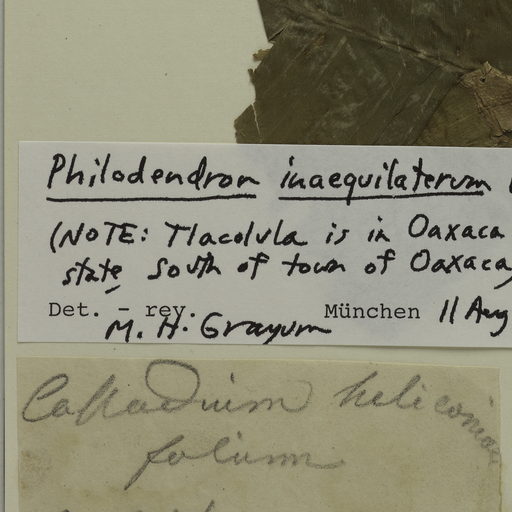 Philodendron inaequilaterum
(NOTE: Tlacolula is in Oaxaca
state, south of town of Oaxaca)
Det. - rev. München 11 Aug
M. H. Grayum
Calladium heliconiae
folium